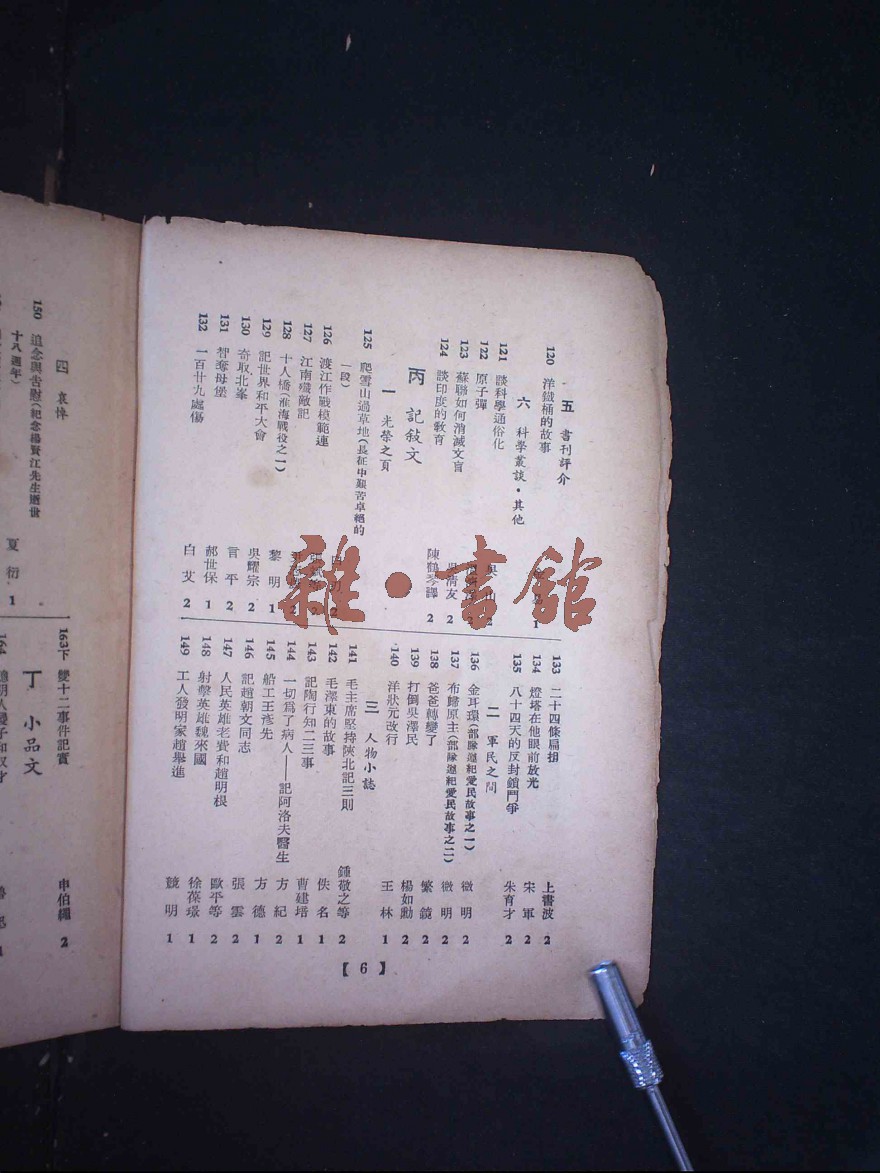 五 書刊評介
120 洋鐵桶的故事 1
六 科學叢談・其他
121 談科學通俗化 2
122 原子彈 2
123 蘇聯如何消滅文盲 吳清友 2
124 談印度的教育 陳鶴琴譯 2
丙 記敍文
一 光榮之頁
125 爬雪山過草地(長征中艱苦卓絕的
一段) 2
126 渡江作戰模範連
127 江南殲敵記
128 十人橋(淮海戰役之一) 黎明 1
129 記世界和平大會 吳耀宗 2
130 奇取北峯 言平 2
131 智奪母堡 郝世保 1
132 一百廿九處傷 白艾 2
133 二十四條扁担 上書波 2
134 燈塔在他眼前放光 宋軍 2
135 八十四天的反封鎖鬥爭 朱育才 2
二 軍民之間
136 金耳環(部隊遵紀愛民故事之一) 微明 2
137 布歸原主(部隊遵紀愛民故事之二) 微明 2
138 爸爸轉變了 繁鏡 2
139 打倒吳澤民 楊如勳 2
140 洋狀元改行 王林 1
三 人物小誌
141 毛主席堅持陝北記三則 鍾敬之等 2
142 毛澤東的故事 佚名 1
143 記陶行知二三事 曹建培 1
144 一切爲了病人——記阿洛夫醫生 方紀 2
145 船工王彥先 方德 1
146 記趙朝文同志 張雲 2
147 人民英雄老費和趙明根 歐平等 2
148 射擊英雄魏來國 徐葆璟 1
149 工人發明家趙舉進 競明 1
【 6 】
四 哀悼
150 追念與告慰(紀念楊賢江先生逝世
十八週年) 夏衍 1
163下 雙十二事件記實 申伯純 2
丁 小品文
164
雜・書館